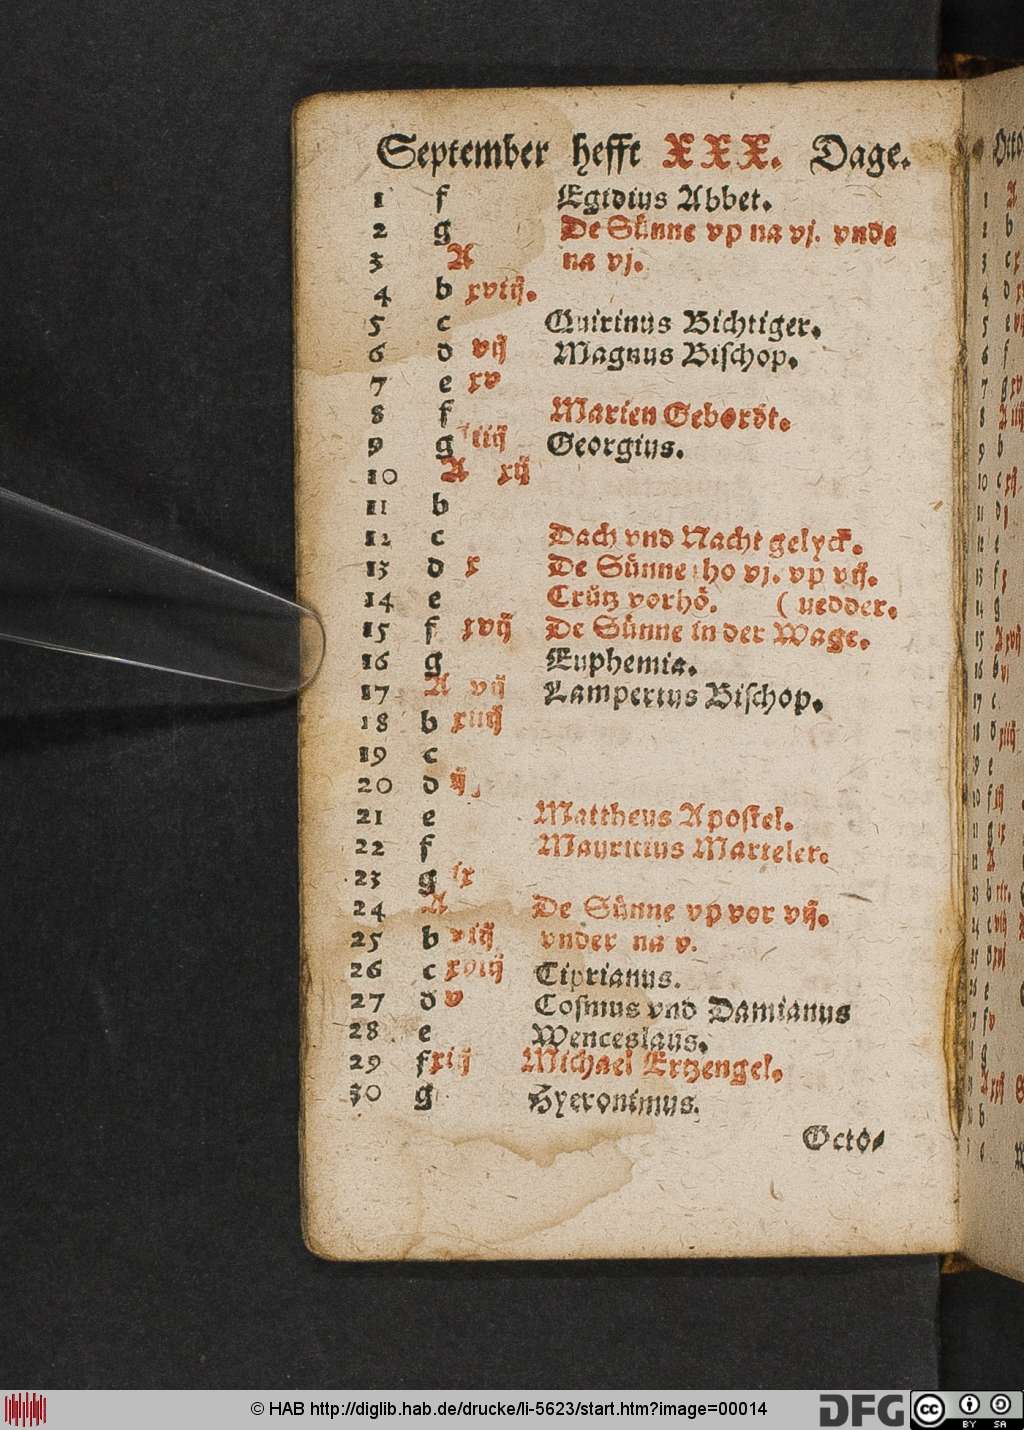 September hefft XXX. Dage.
1 f Egidius Abbet.
2 g De Sünne vp na vj. vnde
3 A na vj.
4 b xviij.
5 c Quirinus Bichtiger.
6 d vij Magnus Bischop.
7 e xv
8 f Marien Gebordt.
9 g iiij Georgius.
10 A xij
11 b
12 c Dach vnd Nacht gelyck.
13 d x De Sünne ho vj. vp vij.
14 e Crütz vorhö. ( uedder.
15 f xvij De Sünne in der Wage.
16 g Euphemia.
17 A vij Lampertus Bischop.
18 b xiiij
19 c
20 d ij
21 e Mattheus Apostel.
22 f Mauritius Marteler.
23 g ix
24 A De Sünne vp vor vij.
25 b viij vnder na v.
26 c xviij Ciprianus.
27 d v Cosmus vnd Damianus
28 e Wenceslaus.
29 f xiij Michael Ertzengel.
30 g Hyeronimus.
Octo-
© HAB http://diglib.hab.de/drucke/li-5623/start.htm?image=00014
DFG
cc BY SA